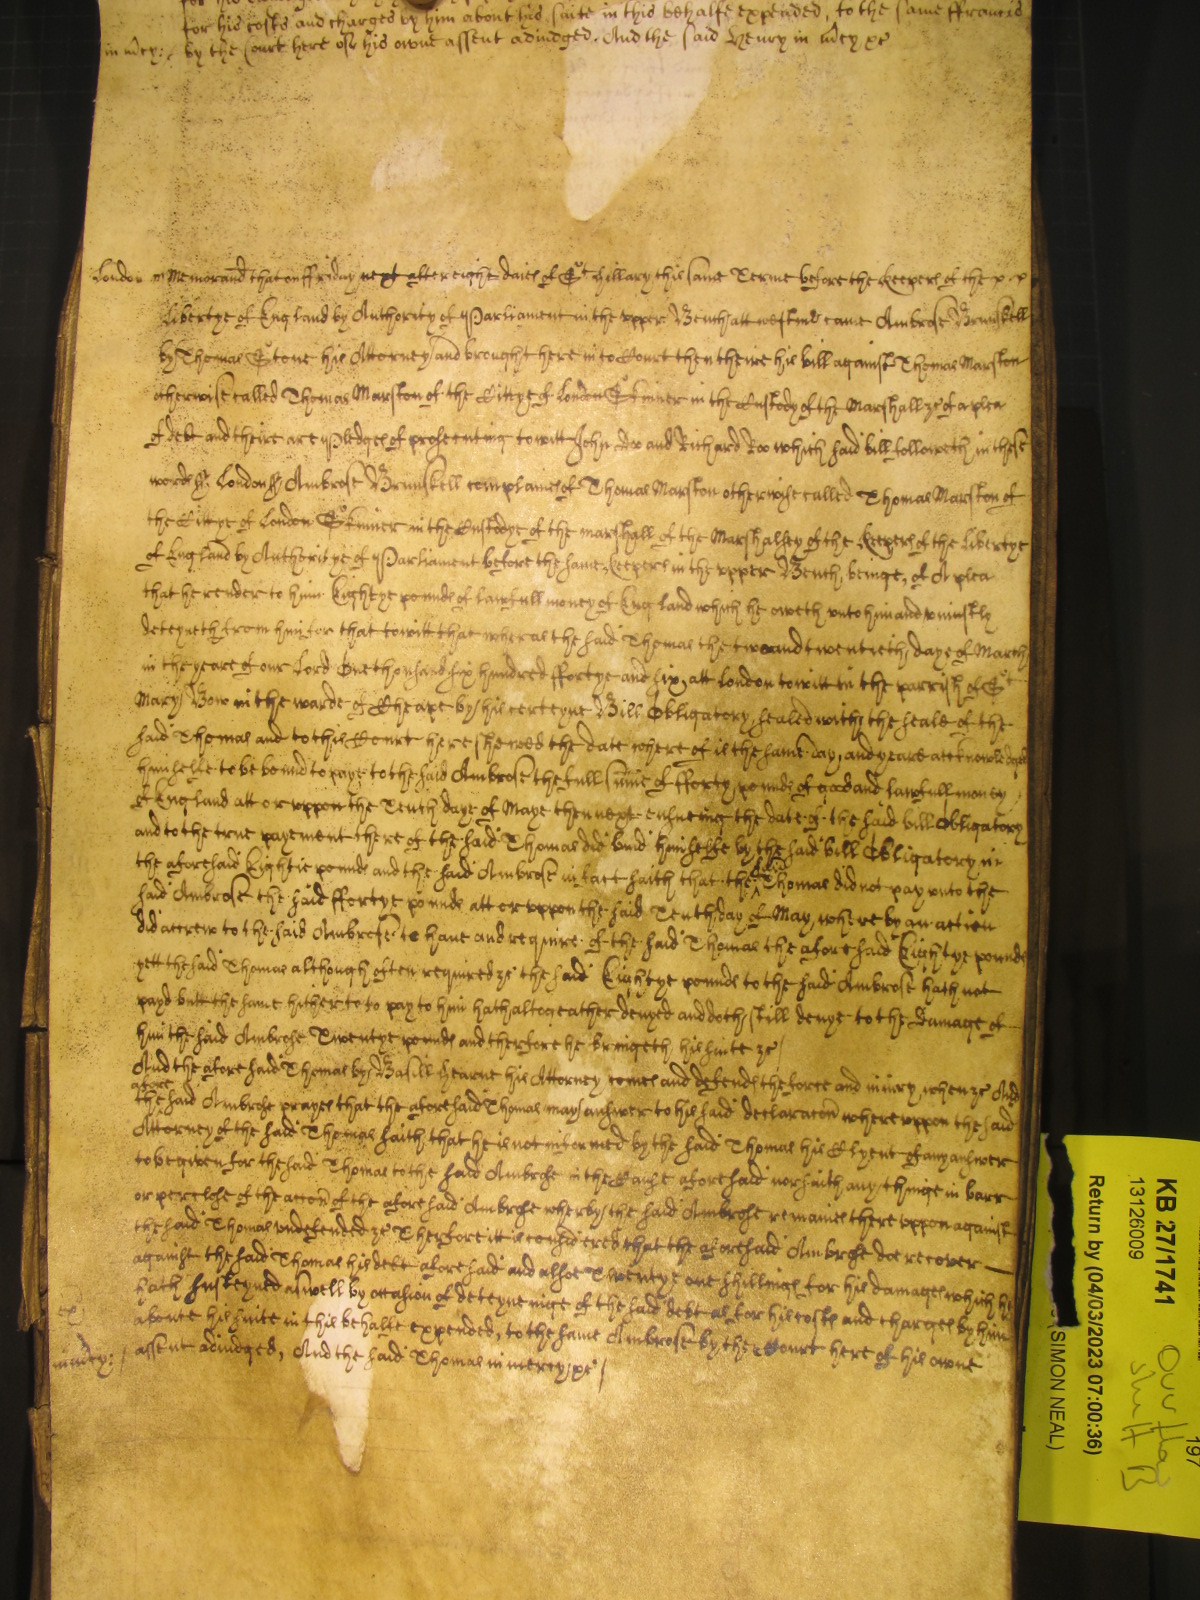 for his costs and charges by him about his suite in this behalfe expended, to the same ffrancis
in m̄cy: by the Court here of his owne assent adiudged. And the said Henry in m̄cy &c
London ss Memorand that on ffriday next after eight daies of St Hillary this same Terme before the Keepers of the
Libertye of England by Authority of Parliament in the upper Bench att westmr came Ambrose Brunskell
by Thomas Stone his Attorney and brought here in to Court then there his bill against Thomas Marston
otherwise called Thomas Marston of the Cittye of London Skinner in the Custody of the Marshall &c of a plea
of debt and theire are Pledges of prosecuting towitt John Doo and Richard Roo which said bill followeth in these
words ss. London ss Ambrose Brunskell complaines of Thomas Marston otherwise called Thomas Marston of
the Cittye of London Skinner in the Custodye of the marshall of the Marshalsey of the Keepers of the Libertye
of England by Authoritye of Parliament before the same Keepers in the vpper Bench, beinge, of A plea
that he render to him Eightye pounds of lawfull money of England which he oweth vnto him and vniustly
deteyneth from him for that towitt that wheras the said Thomas the two and twentieth daye of March
in the yeare of our Lord One thousand six hundred ffortye and six, att London towitt in the parrish of St
Mary Bow in the warde of Cheape by his certeyne Bill Obligatory, sealed with the seale of the
said Thomas and to this Court here shewed the date where of is the same day and yeare acknowledged
himselfe to be bound to paye to the said Ambrose the full sum̄e of fforty pounds of good and lawfull money
of England att or vppon the Tenth daye of Maye then next ensueing the date of the said bill Obligatory
and to the true payement there of the said Thomas did bind himselfe by the said bill Obligatory in
the aforesaid Eightie pounds and the said Ambrose in fact saith that the sd Thomas did not pay vnto the
said Ambrose the said ffortye pounds att or vppon the said Tenth day of May, where by an action
did accrew to the said Ambrose to haue and require of the said Thomas the afore said Eightye pounds
yett the said Thomas although often required &c the said Eightye pounds to the said Ambrose hath not
payd butt the same hither to to pay to him hath altogeather denyed and doth still denye to the Damage of
him the said Ambrose Twentye pounds and therfore he bringeth his suite &c
And the afore said Thomas by Basill Hearne his Attorney comes and defends the force and iniury when &c And
the afore said Ambrose prayes that the aforesaid Thomas may answer to his said declarac̄on where vppon the said
Attorney of the said Thomas saith that he is not informed by the said Thomas his Clyent of any answer
to be given for the said Thomas to the said Ambrose in the Cause aforesaid nor saith any thinge in barr
or perclose of the acc̄on of the afore said Ambrose wherby the said Ambrose remaines there vppon against
the said Thomas vndefended &c Therfore itt is considered that the aforesaid Ambrose doe recover
against the said Thomas his debt afore said and alsoe Twentye one shillings for his damages which he
hath susteyned aswell by occasion of deteyneinge of the said debt as for his costs and charges by him
ex
aboute his suite in this behalfe expended, to the same Ambrose by the Court here of his owne
in m̄cy: assent adiudged, And the said Thomas in mercy, &c
KB 27/1741
13126009
Return by (04/03/2023 07:00:36)
(SIMON NEAL)
197